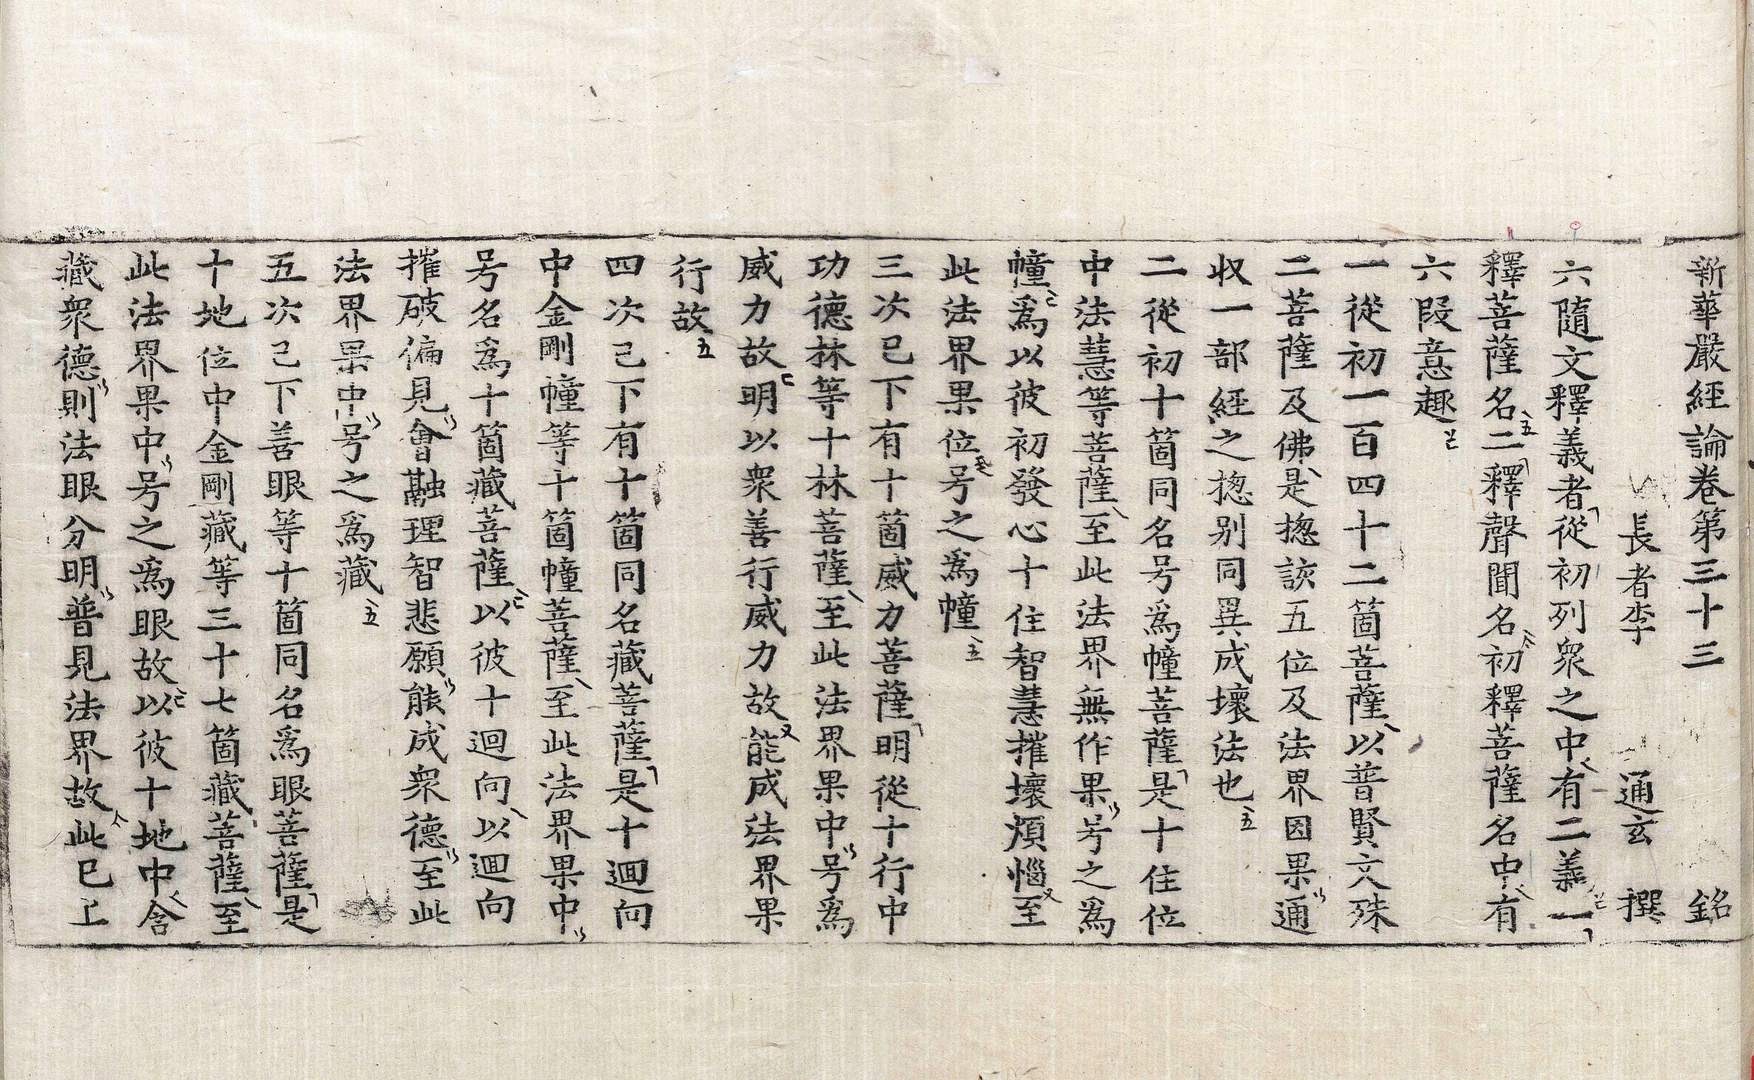 新華嚴經論卷第三十三 銘
長者李 通玄 撰
六隨文釋義者從初列衆之中有二義一
釋菩薩名二釋聲聞名初釋菩薩名中有
六段意趣
一從初一百四十二箇菩薩以普賢文殊
二菩薩及佛是揔該五位及法界因果通
収一部經之揔别同異成壞法也
二從初十箇同名号爲幢菩薩是十住位
中法慧等菩薩至此法界無作果号之爲
幢爲以彼初發心十住智慧摧壞煩惱至
此法界果位号之爲幢
三次已下有十箇威力菩薩明從十行中
功德林等十林菩薩至此法界果中号爲
威力故明以衆善行威力故能成法界果
行故
四次已下有十箇同名藏菩薩是十迴向
中金剛幢等十箇幢菩薩至此法界果中
号名爲十箇藏菩薩以彼十迴向以迴向
摧破偏見會融理智悲願能成衆德至此
法界果中号之爲藏
五次已下善眼等十箇同名爲眼菩薩是
十地位中金剛藏等三十七箇藏菩薩至
此法界果中号之爲眼故以彼十地中含
藏衆德則法眼分明普見法界故此已上